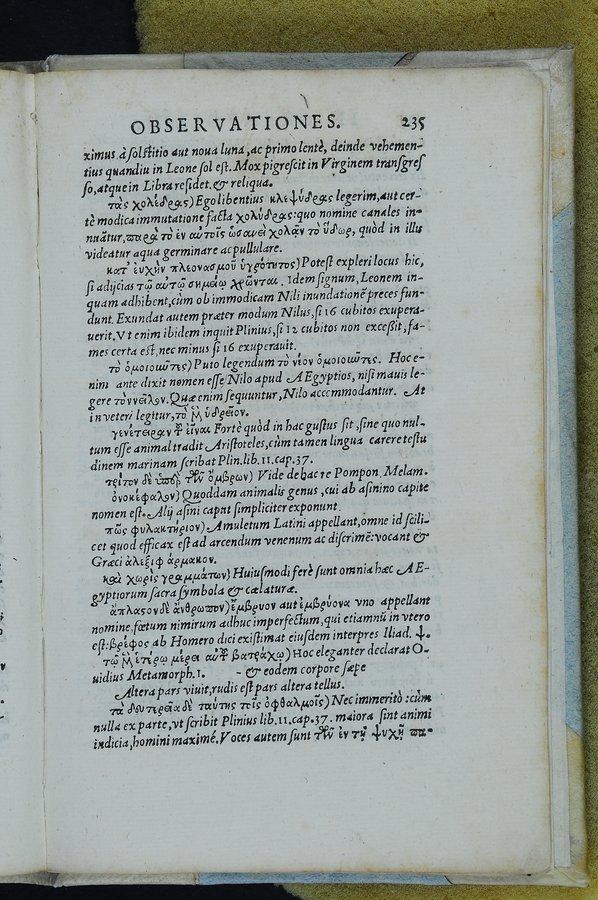 OBSERVATIONES. 235
ximus à solstitio aut noua luna, ac primo lentè, deinde vehemen-
tius quandiu in Leone sol est. Mox pigrescit in Virginem transgres
so, atque in Libra residet. & reliqua.
τὰς χολέδρας) Ego libentius κλεψύδρας legerim, aut cer-
tè modica immutatione facta χολύδρας: quo nomine canales in-
nuātur, παρὰ τὸ ἐν αὐτοῖς ὡσανεὶ χολᾷν τὸ ὕδωρ, quòd in illis
videatur aqua germinare ac pullulare.
κατ' εὐχὴν πλεονασμοῦ ὑγρότητος) Potest expleri locus hic,
si adijcias τῷ αὐτῷ σημείῳ χρῶνται. Idem signum, Leonem in-
quam adhibent, cùm ob immodicam Nili inundationē preces fun-
dunt. Exundat autem præter modum Nilus, si 16 cubitos exupera-
uerit. Vt enim ibidem inquit Plinius, si 12 cubitos non exceßit, fa-
mes certa est, nec minus si 16 exuperauit.
τὸ ὁμοιοῦντες) Puto legendum τὸ νέον ὁμοιοῦντες. Hoc e-
nim ante dixit nomen esse Nilo apud AEgyptios, nisi mauis le-
gere τὸν νεῖλον. Quæ enim sequuntur, Nilo accommodantur. At
in veteri legitur, τὸ ὑδρεῖον.
γενέτειραν τοῦ εἶναι Fortè quòd in hac gustus sit, sine quo nul-
tum esse animal tradit Aristoteles, cùm tamen lingua carere testu
dinem marinam scribat Plin. lib. 11. cap. 37.
τρίτον δὲ ὑπὲρ τῶν ὄμβρων) Vide de hac re Pompon. Melam.
ὀνοκέφαλον) Quoddam animalis genus, cui ab asinino capite
nomen est. Alij asini caput simpliciter exponunt.
πῶς φυλακτήριον) Amuletum Latini appellant, omne id scili-
cet quod efficax est ad arcendum venenum ac discrimē: vocant &
Græci ἀλεξιφάρμακον.
καὶ χωρὶς γραμμάτων) Huiusmodi ferè sunt omnia hæc AE-
gyptiorum sacra symbola & cælaturæ.
ἄπλασον δὲ ἄνθρωπον) ἔμβρυον aut ἐμβρύονα vno appellant
nomine, fœtum nimirum adhuc imperfectum, qui etiamnū in vtero
est: βρέφος ab Homero dici existimat eiusdem interpres Iliad. ψ.
τῷ μὲν ἑτέρῳ μέρει αὐτοῦ βατράχῳ) Hoc eleganter declarat O-
uidius Metamorph. 1. - & eodem corpore sæpe
Altera pars viuit, rudis est pars altera tellus.
τὰ δευτερεῖα δὲ ταύτης τοῖς ὀφθαλμοῖς) Nec immeritò: cùm
nulla ex parte, vt scribit Plinius lib. 11. cap. 37. maiora sint animi
indicia, homini maximè. Voces autem sunt τῶν ἐν τῇ ψυχῇ πα-